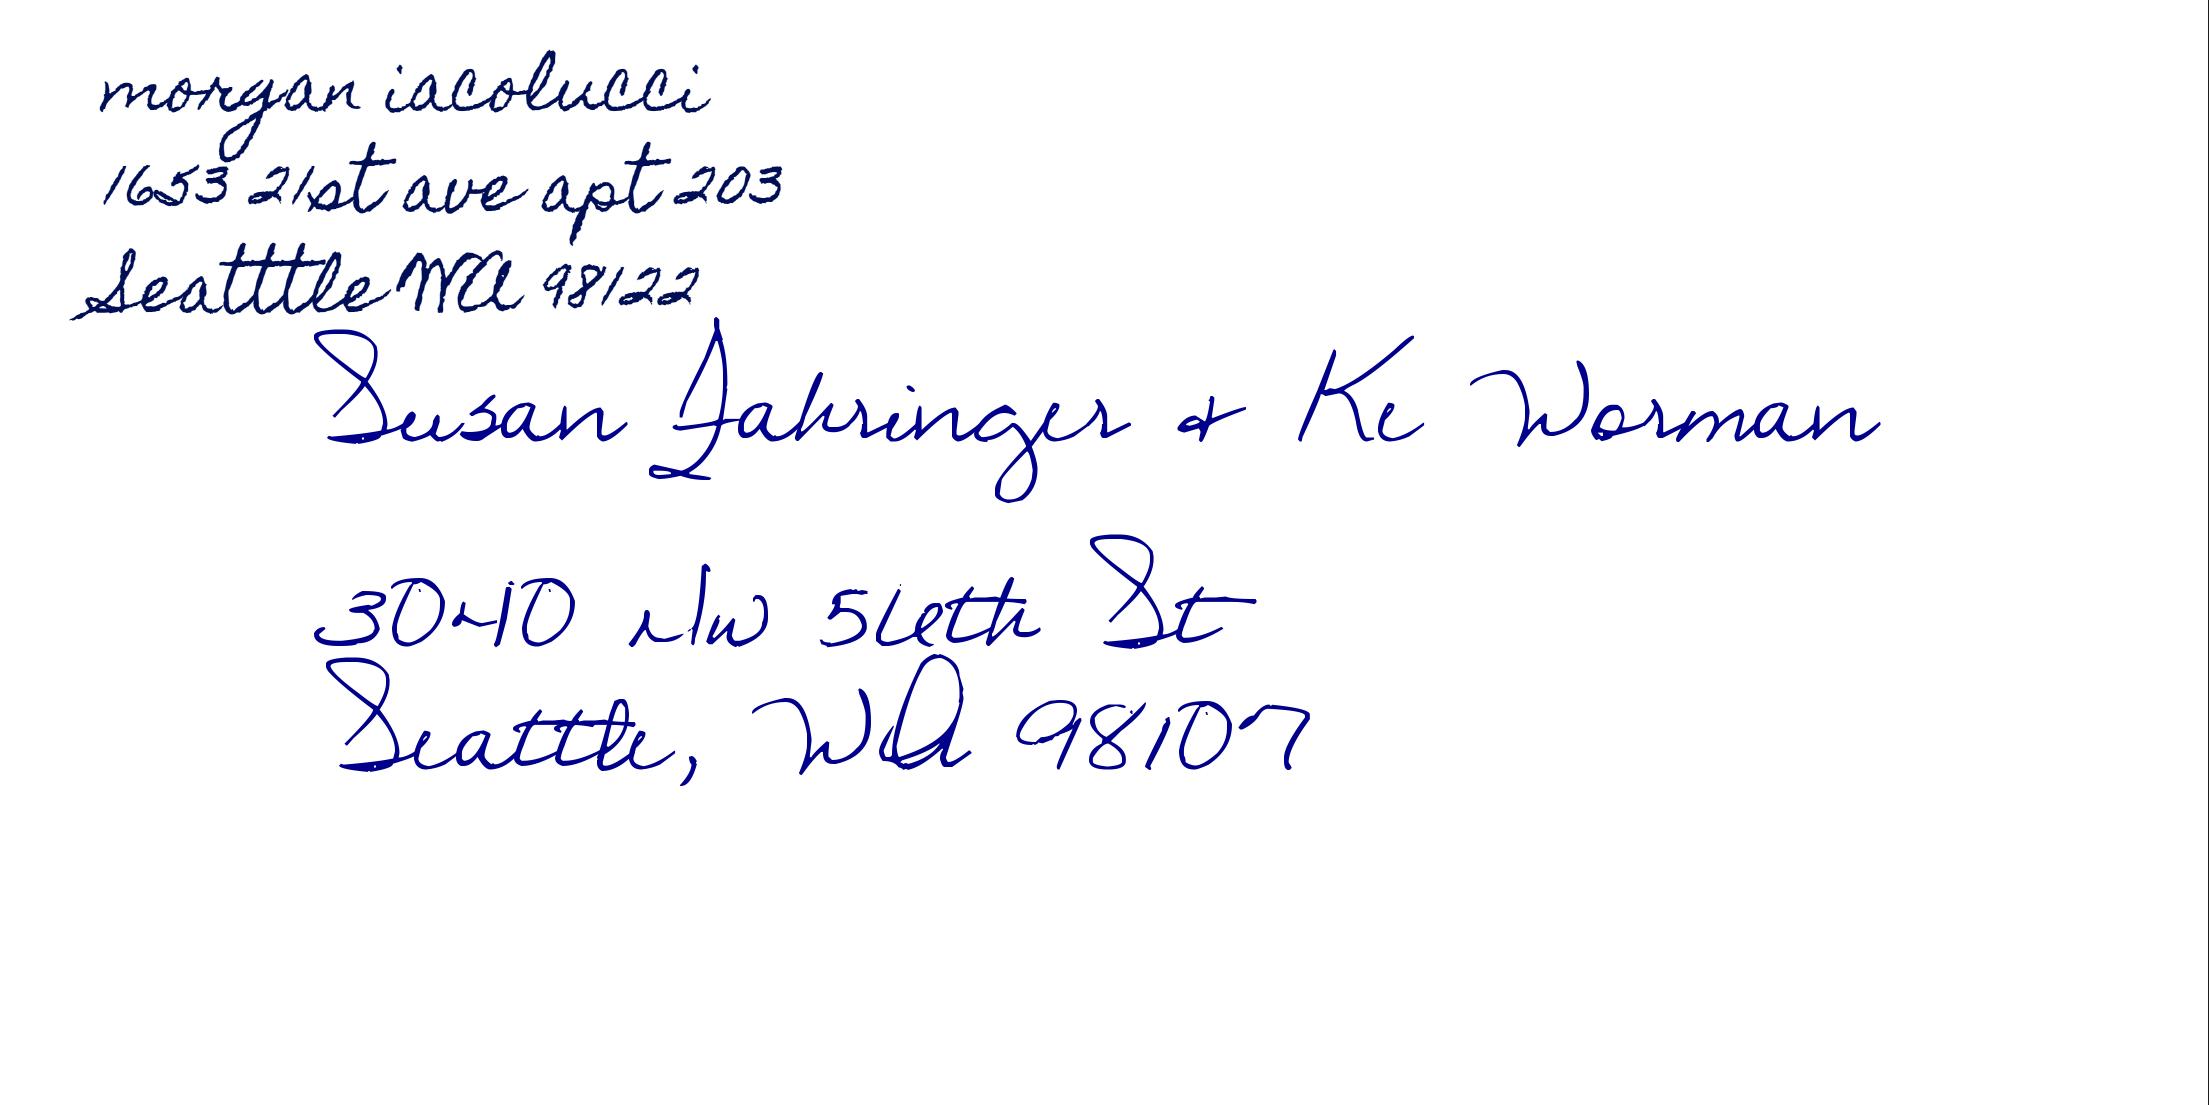 morgan iacolucci
1653 21st ave apt 203
Seatttle WA 98122
Susan Fahringer & Ke Worman
3040 NW 56th St
Seattle, WA 98107